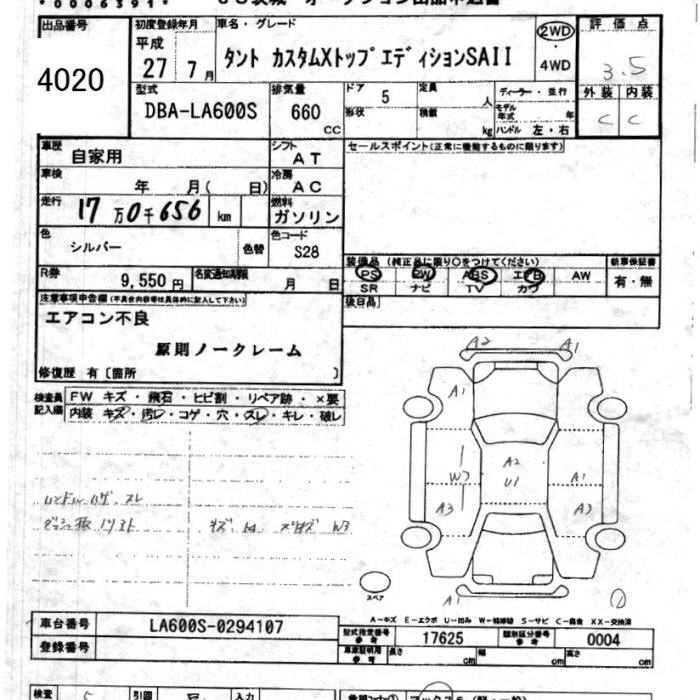 出品番号
4020
初度登録年月
平成
27 7月
車名・グレード
タント カスタムXトップエディションSAII
2WD
4WD
評価点
3.5
外装 内装
C C
型式
DBA-LA600S
排気量
660
CC
ドア 5
形状
定員
人
積載
kg
ディーラー・並行
モデル年式 年
ハンドル 左・右
車歴
自家用
シフト
AT
セールスポイント(正常に機能するものに限ります)
車検
年 月( 日)
冷房
AC
走行
17万0千656 km
燃料
ガソリン
色
シルバー
色替
色コード
S28
装備品(純正品に限り○をつけてください)
PS PW ABS エアB AW
SR ナビ TV カワ
新車保証書
有・無
R券
9,550円
名変通知期限
月 日
後日品
注意事項申告欄(不具合内容等は具体的に記入して下さい)
エアコン不良
原則ノークレーム
修復歴 有〔箇所 〕
検査員記入欄
FW キズ・飛石・ヒビ割・リペア跡・×要
内装 キズ・汚レ・コゲ・穴・スレ・キレ・破レ
ハンドルハゲ スレ
W3
A2 A1
A1
A2
U1
W3
A3
A1
A2
A1
スペア
A-キズ E-エクボ U-凹み W-補修跡 S-サビ C-腐食 XX-交換済
車台番号
LA600S-0294107
型式指定番号
参考
17625
類別区分番号
参考
0004
登録番号
車庫証明用
参考
長さ cm
幅 cm
高さ cm
検査
引図
入力